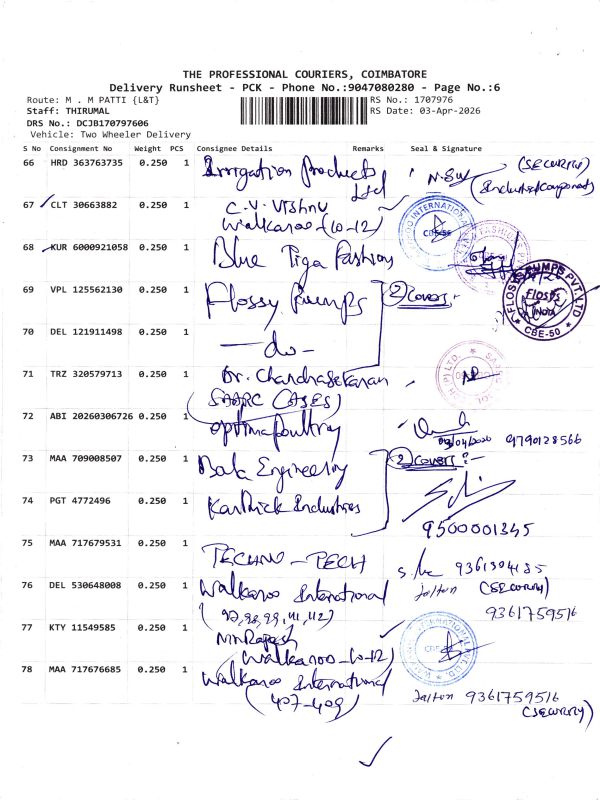 THE PROFESSIONAL COURIERS, COIMBATORE
Delivery Runsheet - PCK - Phone No.:9047080280 - Page No.:6
Route: M . M PATTI {L&T} RS No.: 1707976
Staff: THIRUMAL RS Date: 03-Apr-2026
DRS No.: DCJB170797606
Vehicle: Two Wheeler Delivery
S No Consignment No Weight PCS Consignee Details Remarks Seal & Signature
66 HRD 363763735 0.250 1 Irrigation Products Ltd (SECURITY)
67 CLT 30663882 0.250 1 C.V. Vishnu
Walkaroo-(10-12)
68 KUR 6000921058 0.250 1 Blue Tiga Fashions
69 VPL 125562130 0.250 1 Flossy Pumps (2) Covers
FLOSYS PUMPS PVT. LTD
CBE-50
70 DEL 121911498 0.250 1 - do -
71 TRZ 320579713 0.250 1 Dr. Chandrasekaran
(SAARC CASES)
72 ABI 20260306726 0.250 1 Optima Poultry 9790128566
73 MAA 709008507 0.250 1 Bala Engineering (2) Covers
74 PGT 4772496 0.250 1 Karthick Industries
9500001345
75 MAA 717679531 0.250 1 TECHNO-TECH 9361304185
76 DEL 530648008 0.250 1 Walkaroo International (SECURITY)
9361759516
77 KTY 11549585 0.250 1 Mr Rajesh
(Walkaroo-10-12)
78 MAA 717676685 0.250 1 Walkaroo International 9361759516
(407-409) (SECURITY)